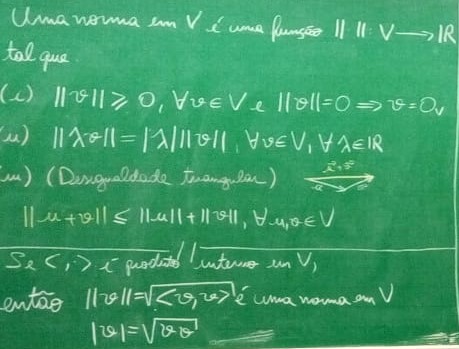 Uma norma em V é uma função || ||: V → IR
tal que
(i) ||v|| ≥ 0, ∀v ∈ V e ||v|| = 0 ⇒ v = 0ᵥ
(ii) ||λv|| = |λ| ||v||, ∀v ∈ V, ∀ λ ∈ IR
(iii) (Desigualdade triangular)
||u + v|| ≤ ||u|| + ||v||, ∀ u, v ∈ V
Se < , > é produto interno em V,
então ||v|| = √<v, v> é uma norma em V
|v| = √vv